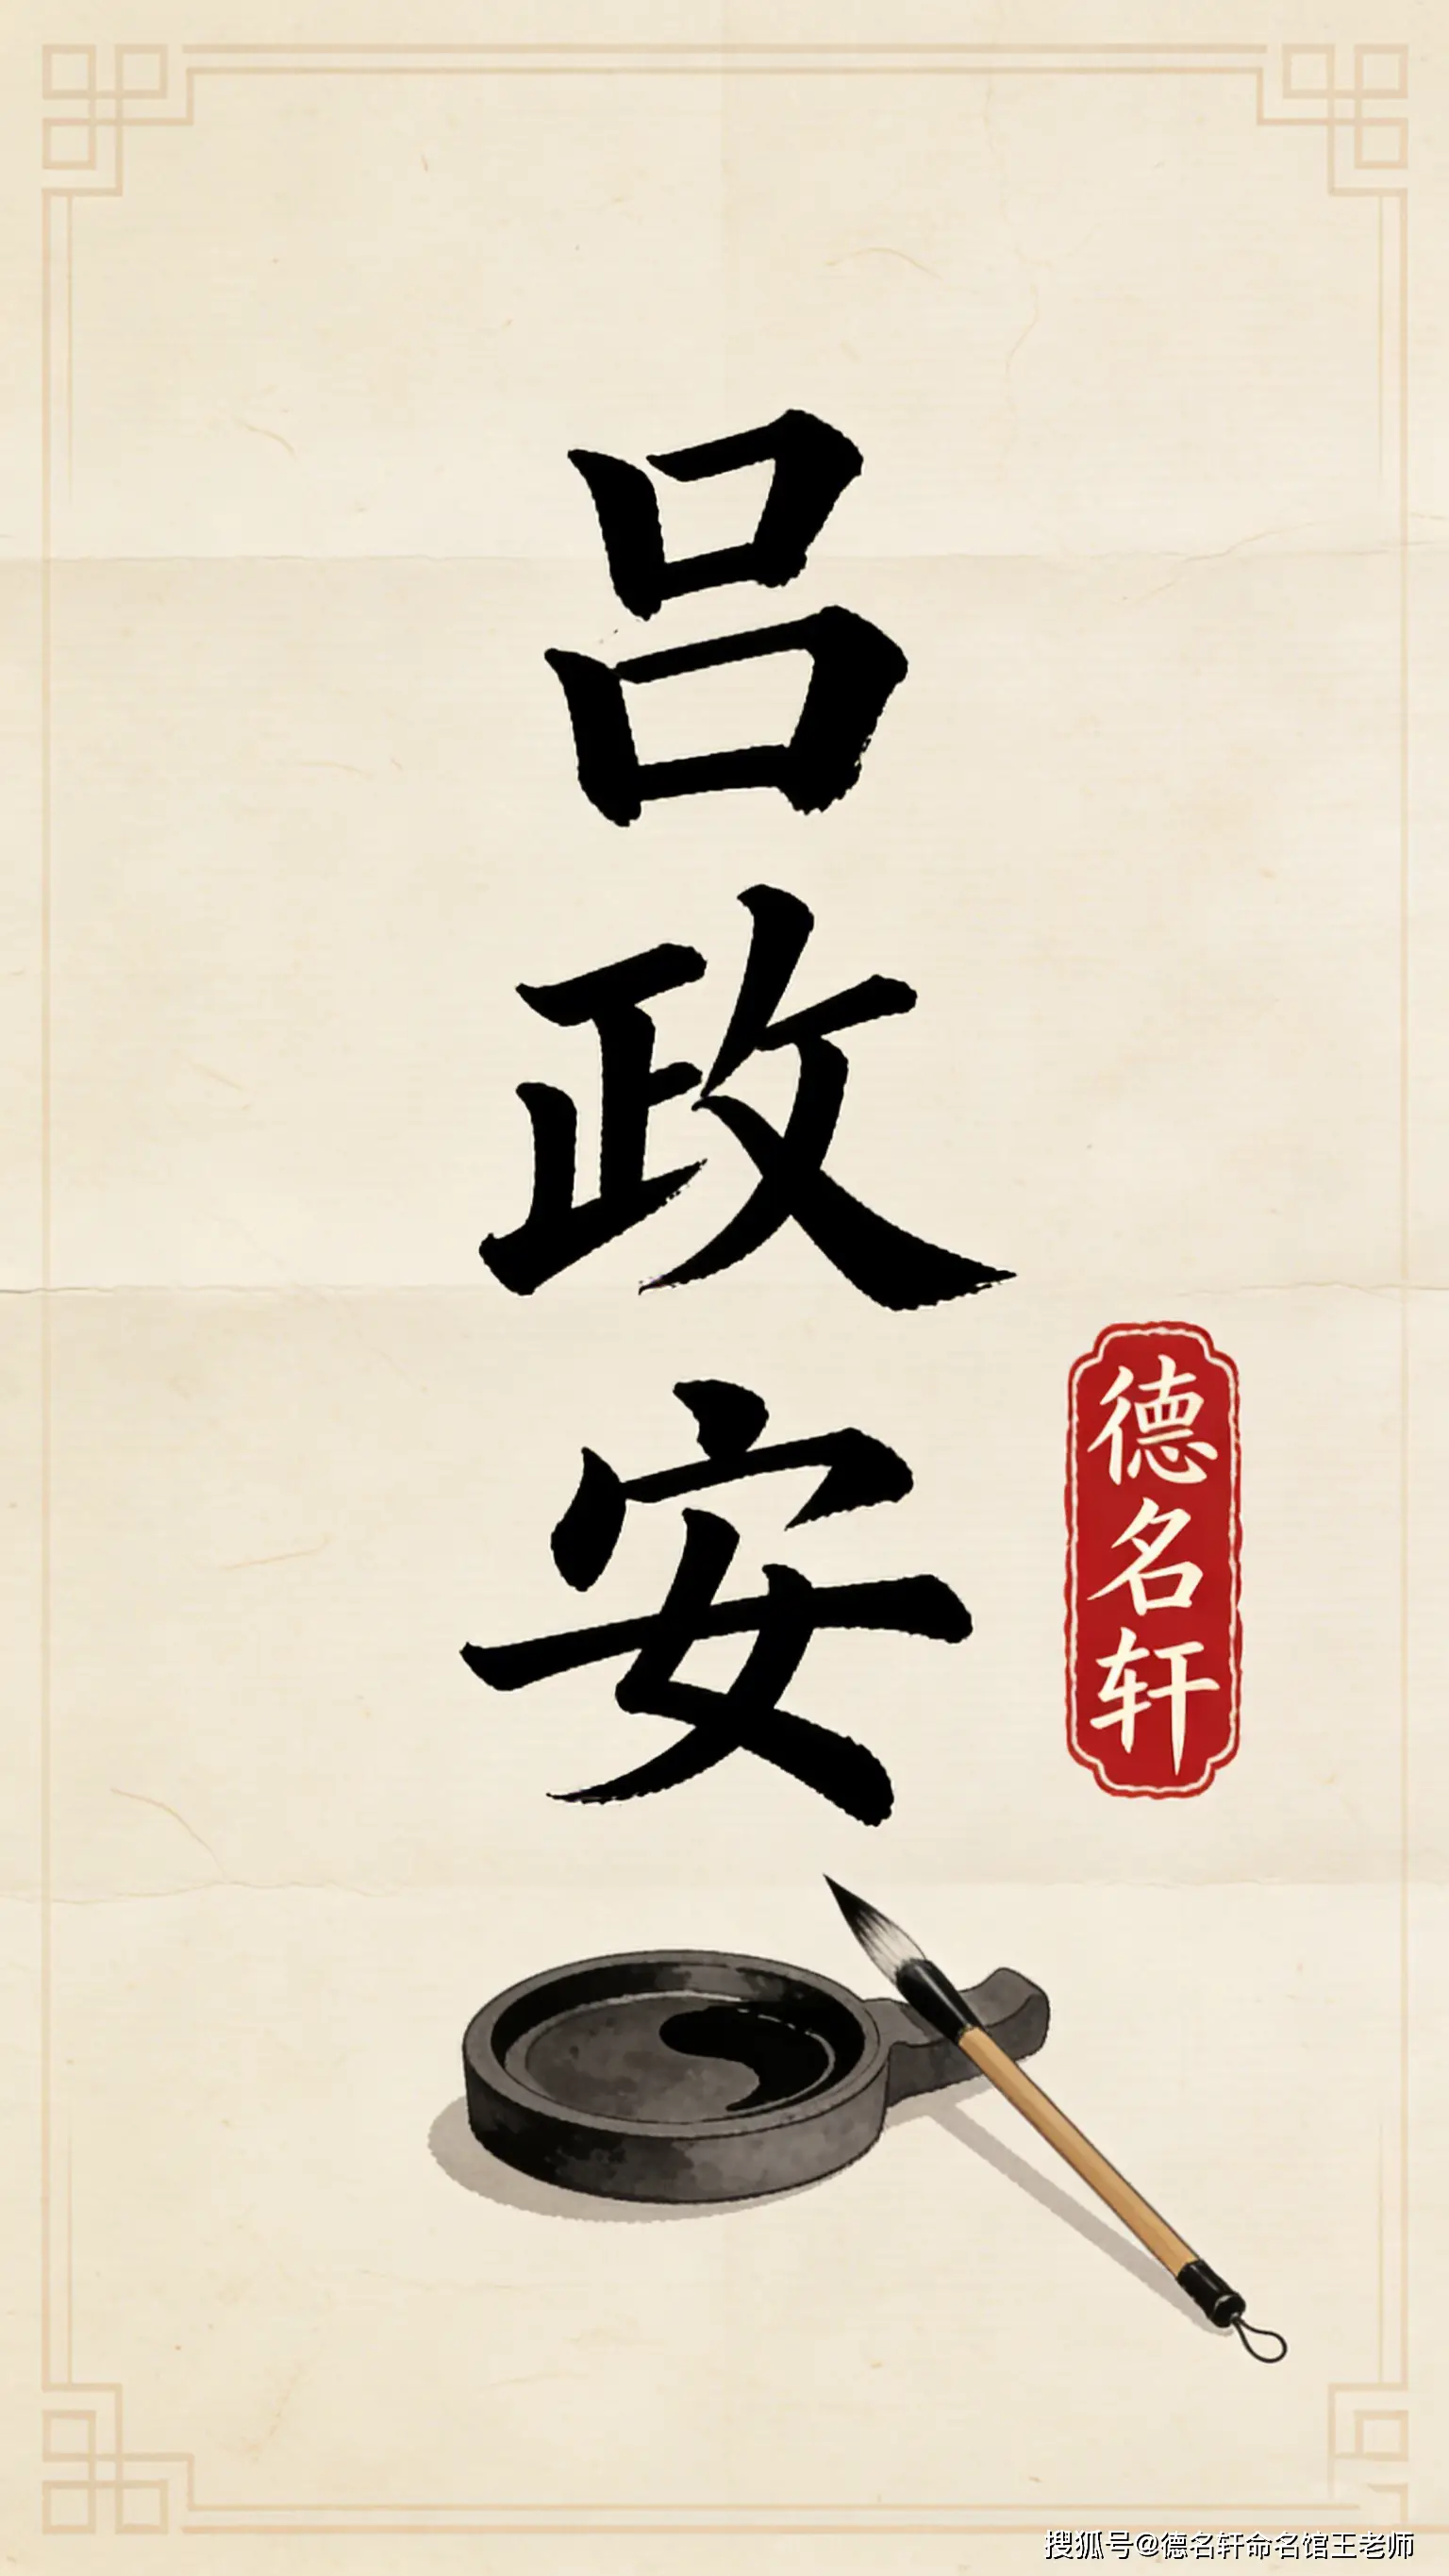 吕政安
德名轩
搜狐号@德名轩命名馆王老师